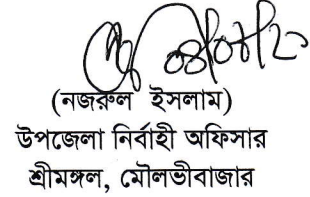 (নজরুল ইসলাম)
উপজেলা নির্বাহী অফিসার
শ্রীমঙ্গল, মৌলভীবাজার